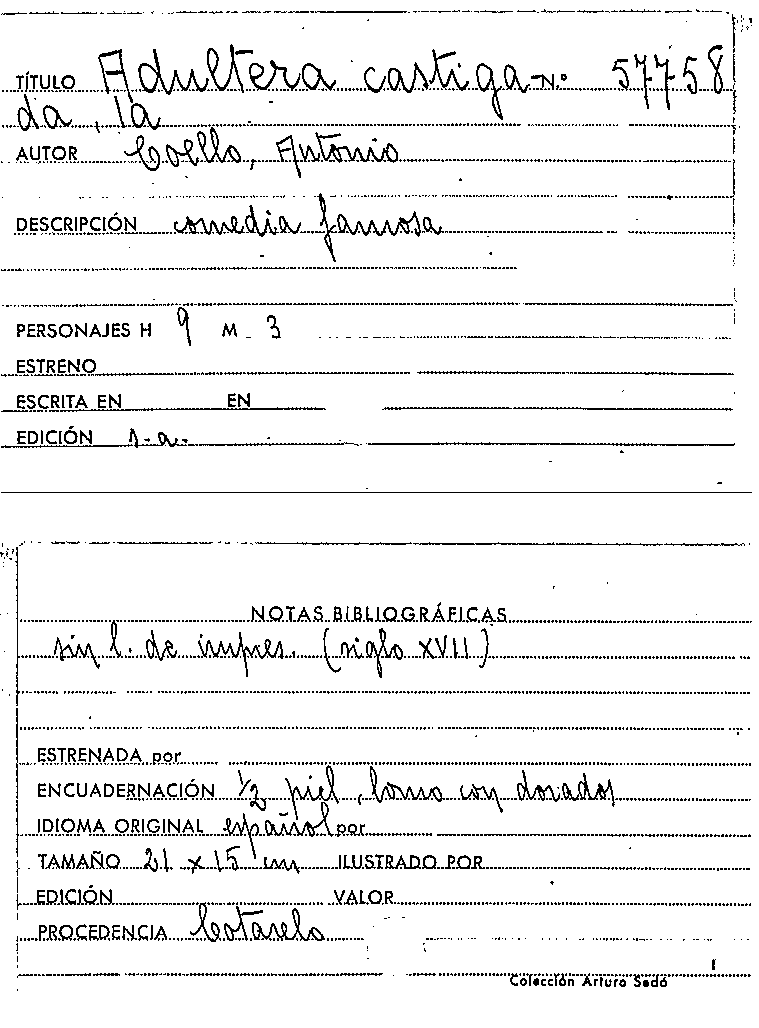 TÍTULO Adultera castiga- N.º 57758
da, la
AUTOR Coello, Antonio
DESCRIPCIÓN comedia famosa
PERSONAJES H 9 M 3
ESTRENO
ESCRITA EN EN
EDICIÓN s.a.
NOTAS BIBLIOGRÁFICAS
sin l. de impres. (siglo XVII)
ESTRENADA por
ENCUADERNACIÓN 1/2 piel, lomo con dorados
IDIOMA ORIGINAL español por
TAMAÑO 21 x 15 cm ILUSTRADO POR
EDICIÓN VALOR
PROCEDENCIA Cotarelo
Colección Arturo Sedó